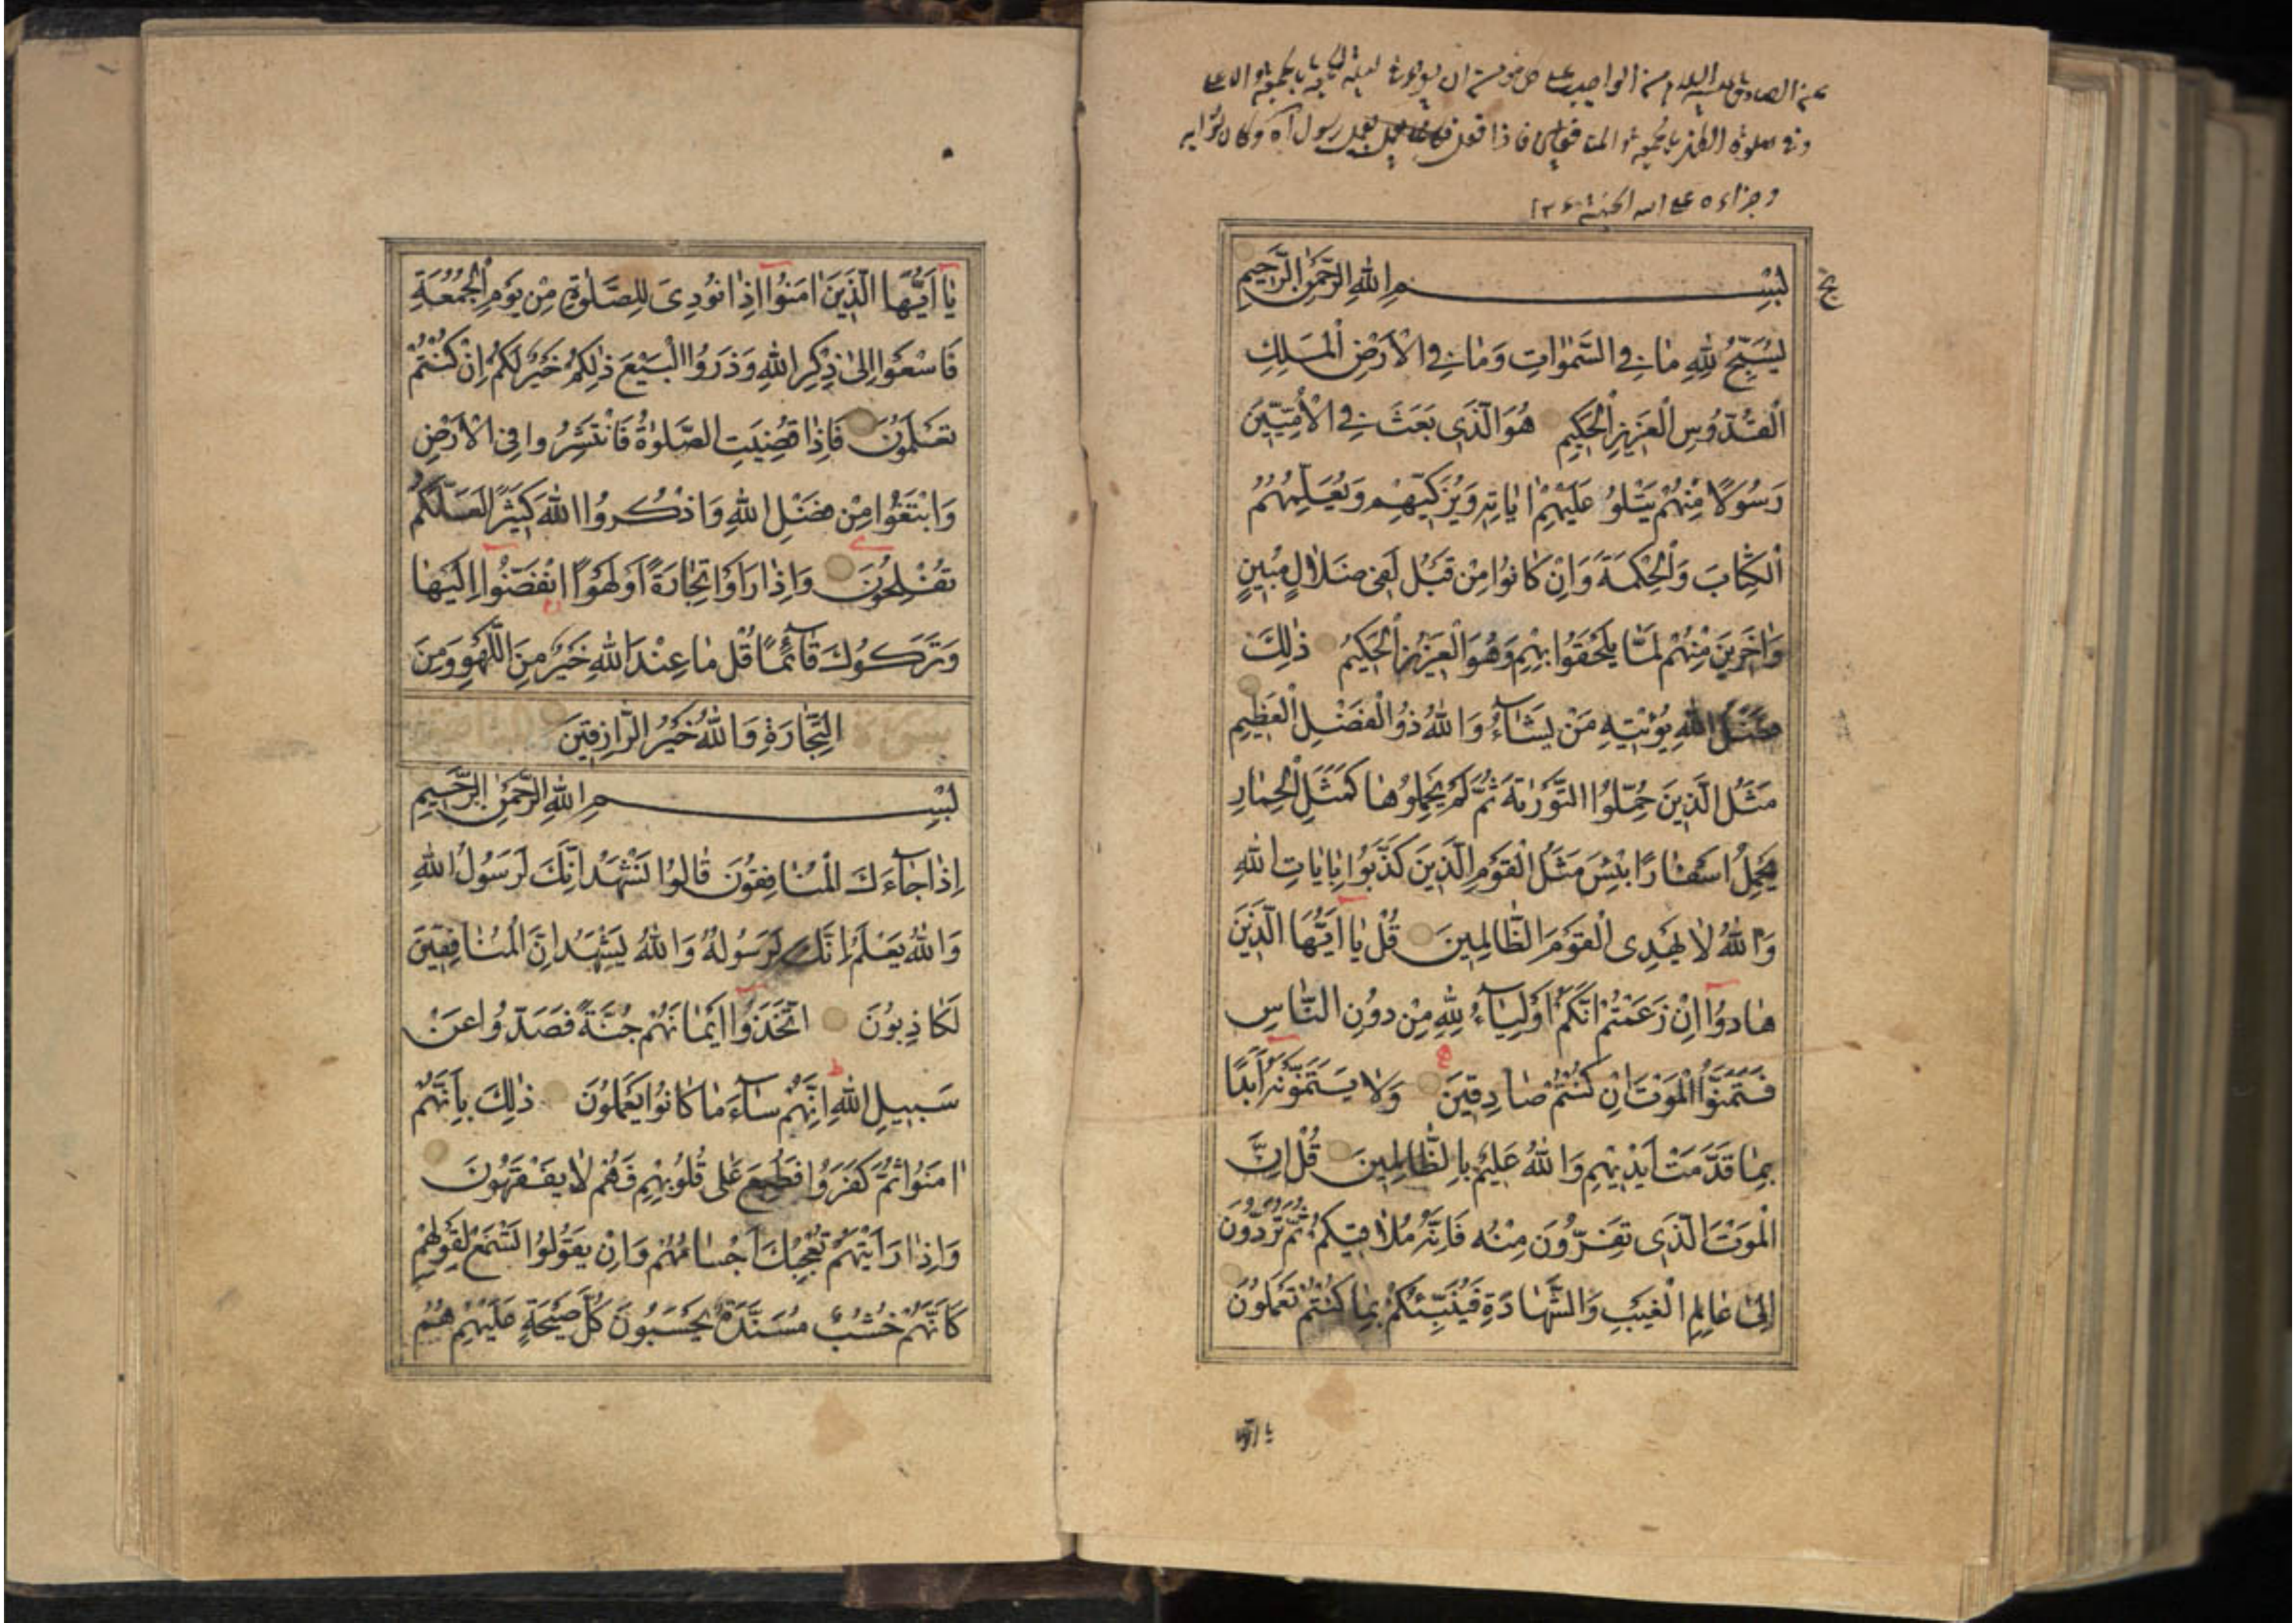 عن الصادق عليه السلام من الواجب على كل مؤمن ان يقرء في ليلة الجمعة بالجمعة والاعلى
وفي صلوة الظهر بالجمعة والمنافقين فاذا فعل فكانما يعمل بعمل رسول الله وكان ثوابه
وجزاءه على الله الجنة
بِسْمِ اللهِ الرَّحْمٰنِ الرَّحِيمِ
يُسَبِّحُ لِلّٰهِ مَا فِي السَّمٰوَاتِ وَمَا فِي الْاَرْضِ الْمَلِكِ
الْقُدُّوسِ الْعَزِيزِ الْحَكِيمِ هُوَ الَّذِى بَعَثَ فِي الْاُمِّيِّينَ
رَسُولًا مِنْهُمْ يَتْلُوا عَلَيْهِمْ اٰيَاتِهِ وَيُزَكِّيهِمْ وَيُعَلِّمُهُمُ
الْكِتَابَ وَالْحِكْمَةَ وَاِنْ كَانُوا مِنْ قَبْلُ لَفِى ضَلَالٍ مُبِينٍ
وَاٰخَرِينَ مِنْهُمْ لَمَّا يَلْحَقُوا بِهِمْ وَهُوَ الْعَزِيزُ الْحَكِيمُ ذٰلِكَ
فَضْلُ اللهِ يُؤْتِيهِ مَنْ يَشَآءُ وَاللهُ ذُو الْفَضْلِ الْعَظِيمِ
مَثَلُ الَّذِينَ حُمِّلُوا التَّوْرٰيةَ ثُمَّ لَمْ يَحْمِلُوهَا كَمَثَلِ الْحِمَارِ
يَحْمِلُ اَسْفَارًا بِئْسَ مَثَلُ الْقَوْمِ الَّذِينَ كَذَّبُوا بِاٰيَاتِ اللهِ
وَاللهُ لَا يَهْدِى الْقَوْمَ الظَّالِمِينَ قُلْ يَا اَيُّهَا الَّذِينَ
هَادُوا اِنْ زَعَمْتُمْ اَنَّكُمْ اَوْلِيَآءُ لِلّٰهِ مِنْ دُونِ النَّاسِ
فَتَمَنَّوُا الْمَوْتَ اِنْ كُنْتُمْ صَادِقِينَ وَلَا يَتَمَنَّوْنَهُ اَبَدًا
بِمَا قَدَّمَتْ اَيْدِيهِمْ وَاللهُ عَلِيمٌ بِالظَّالِمِينَ قُلْ اِنَّ
الْمَوْتَ الَّذِى تَفِرُّونَ مِنْهُ فَاِنَّهُ مُلَاقِيكُمْ ثُمَّ تُرَدُّونَ
اِلٰى عَالِمِ الْغَيْبِ وَالشَّهَادَةِ فَيُنَبِّئُكُمْ بِمَا كُنْتُمْ تَعْمَلُونَ
يَا اَيُّهَا الَّذِينَ اٰمَنُوا اِذَا نُودِىَ لِلصَّلٰوةِ مِنْ يَوْمِ الْجُمُعَةِ
فَاسْعَوْا اِلٰى ذِكْرِ اللهِ وَذَرُوا الْبَيْعَ ذٰلِكُمْ خَيْرٌ لَكُمْ اِنْ كُنْتُمْ
تَعْلَمُونَ فَاِذَا قُضِيَتِ الصَّلٰوةُ فَانْتَشِرُوا فِى الْاَرْضِ
وَابْتَغُوا مِنْ فَضْلِ اللهِ وَاذْكُرُوا اللهَ كَثِيرًا لَعَلَّكُمْ
تُفْلِحُونَ وَاِذَا رَاَوْا تِجَارَةً اَوْ لَهْوًا انْفَضُّوا اِلَيْهَا
وَتَرَكُوكَ قَآئِمًا قُلْ مَا عِنْدَ اللهِ خَيْرٌ مِنَ اللَّهْوِ وَمِنَ
التِّجَارَةِ وَاللهُ خَيْرُ الرَّازِقِينَ
بِسْمِ اللهِ الرَّحْمٰنِ الرَّحِيمِ
اِذَا جَآءَكَ الْمُنَافِقُونَ قَالُوا نَشْهَدُ اِنَّكَ لَرَسُولُ اللهِ
وَاللهُ يَعْلَمُ اِنَّكَ لَرَسُولُهُ وَاللهُ يَشْهَدُ اِنَّ الْمُنَافِقِينَ
لَكَاذِبُونَ اتَّخَذُوا اَيْمَانَهُمْ جُنَّةً فَصَدُّوا عَنْ
سَبِيلِ اللهِ اِنَّهُمْ سَآءَ مَا كَانُوا يَعْمَلُونَ ذٰلِكَ بِاَنَّهُمْ
اٰمَنُوا ثُمَّ كَفَرُوا فَطُبِعَ عَلٰى قُلُوبِهِمْ فَهُمْ لَا يَفْقَهُونَ
وَاِذَا رَاَيْتَهُمْ تُعْجِبُكَ اَجْسَامُهُمْ وَاِنْ يَقُولُوا تَسْمَعْ لِقَوْلِهِمْ
كَاَنَّهُمْ خُشُبٌ مُسَنَّدَةٌ يَحْسَبُونَ كُلَّ صَيْحَةٍ عَلَيْهِمْ هُمُ